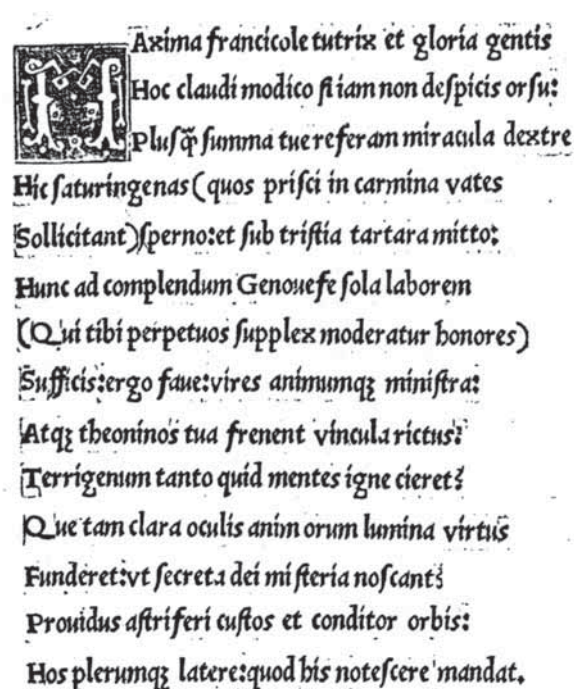 MAxima francicole tutrix et gloria gentis
Hoc claudi modico ſi iam non deſpicis orſu:
Pluſq̃ ſumma tue referam miracula dextre
Hic ſaturingenas (quos priſci in carmina vates
Sollicitant) ſperno: et ſub triſtia tartara mitto:
Hunc ad complendum Genouefe ſola laborem
(Qui tibi perpetuos ſupplex moderatur honores)
Sufficis: ergo faue: vires animumqꝫ miniſtra:
Atqꝫ theoninos tua frenent vincula rictus:
Terrigenum tanto quid mentes igne cieret?
Que tam clara oculis animorum lumina virtus
Funderet: vt ſecreta dei miſteria noſcant?
Prouidus aſtriferi cuſtos et conditor orbis:
Hos plerumqꝫ latere: quod his noteſcere mandat.